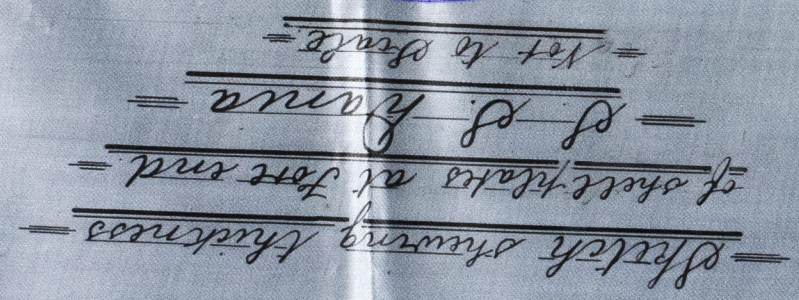 Sketch shewing thickness
of shell plates at Fore end
S. S.
Not to Scale